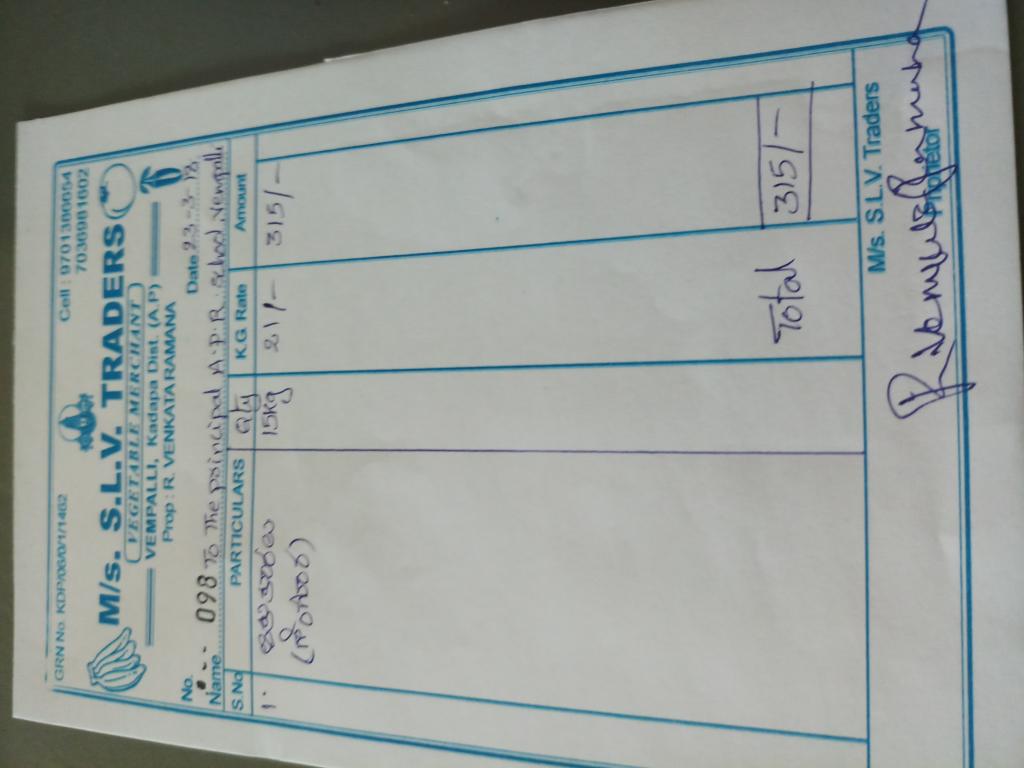 GRN No. KDP/06/0/1/1462
Cell : 9701380054
7036981602
M/s. S.L.V. TRADERS
VEGETABLE MERCHANT
VEMPALLI, Kadapa Dist. (A.P)
Prop : R. VENKATARAMANA
No. 098
Date 23-3-18
Name To The principal A.P.R. School, Vempalli
S.No PARTICULARS Qty K.G Rate Amount
1. 15kg 21/- 315/-
Total 315/-
M/s. S.L.V. Traders
Proprietor